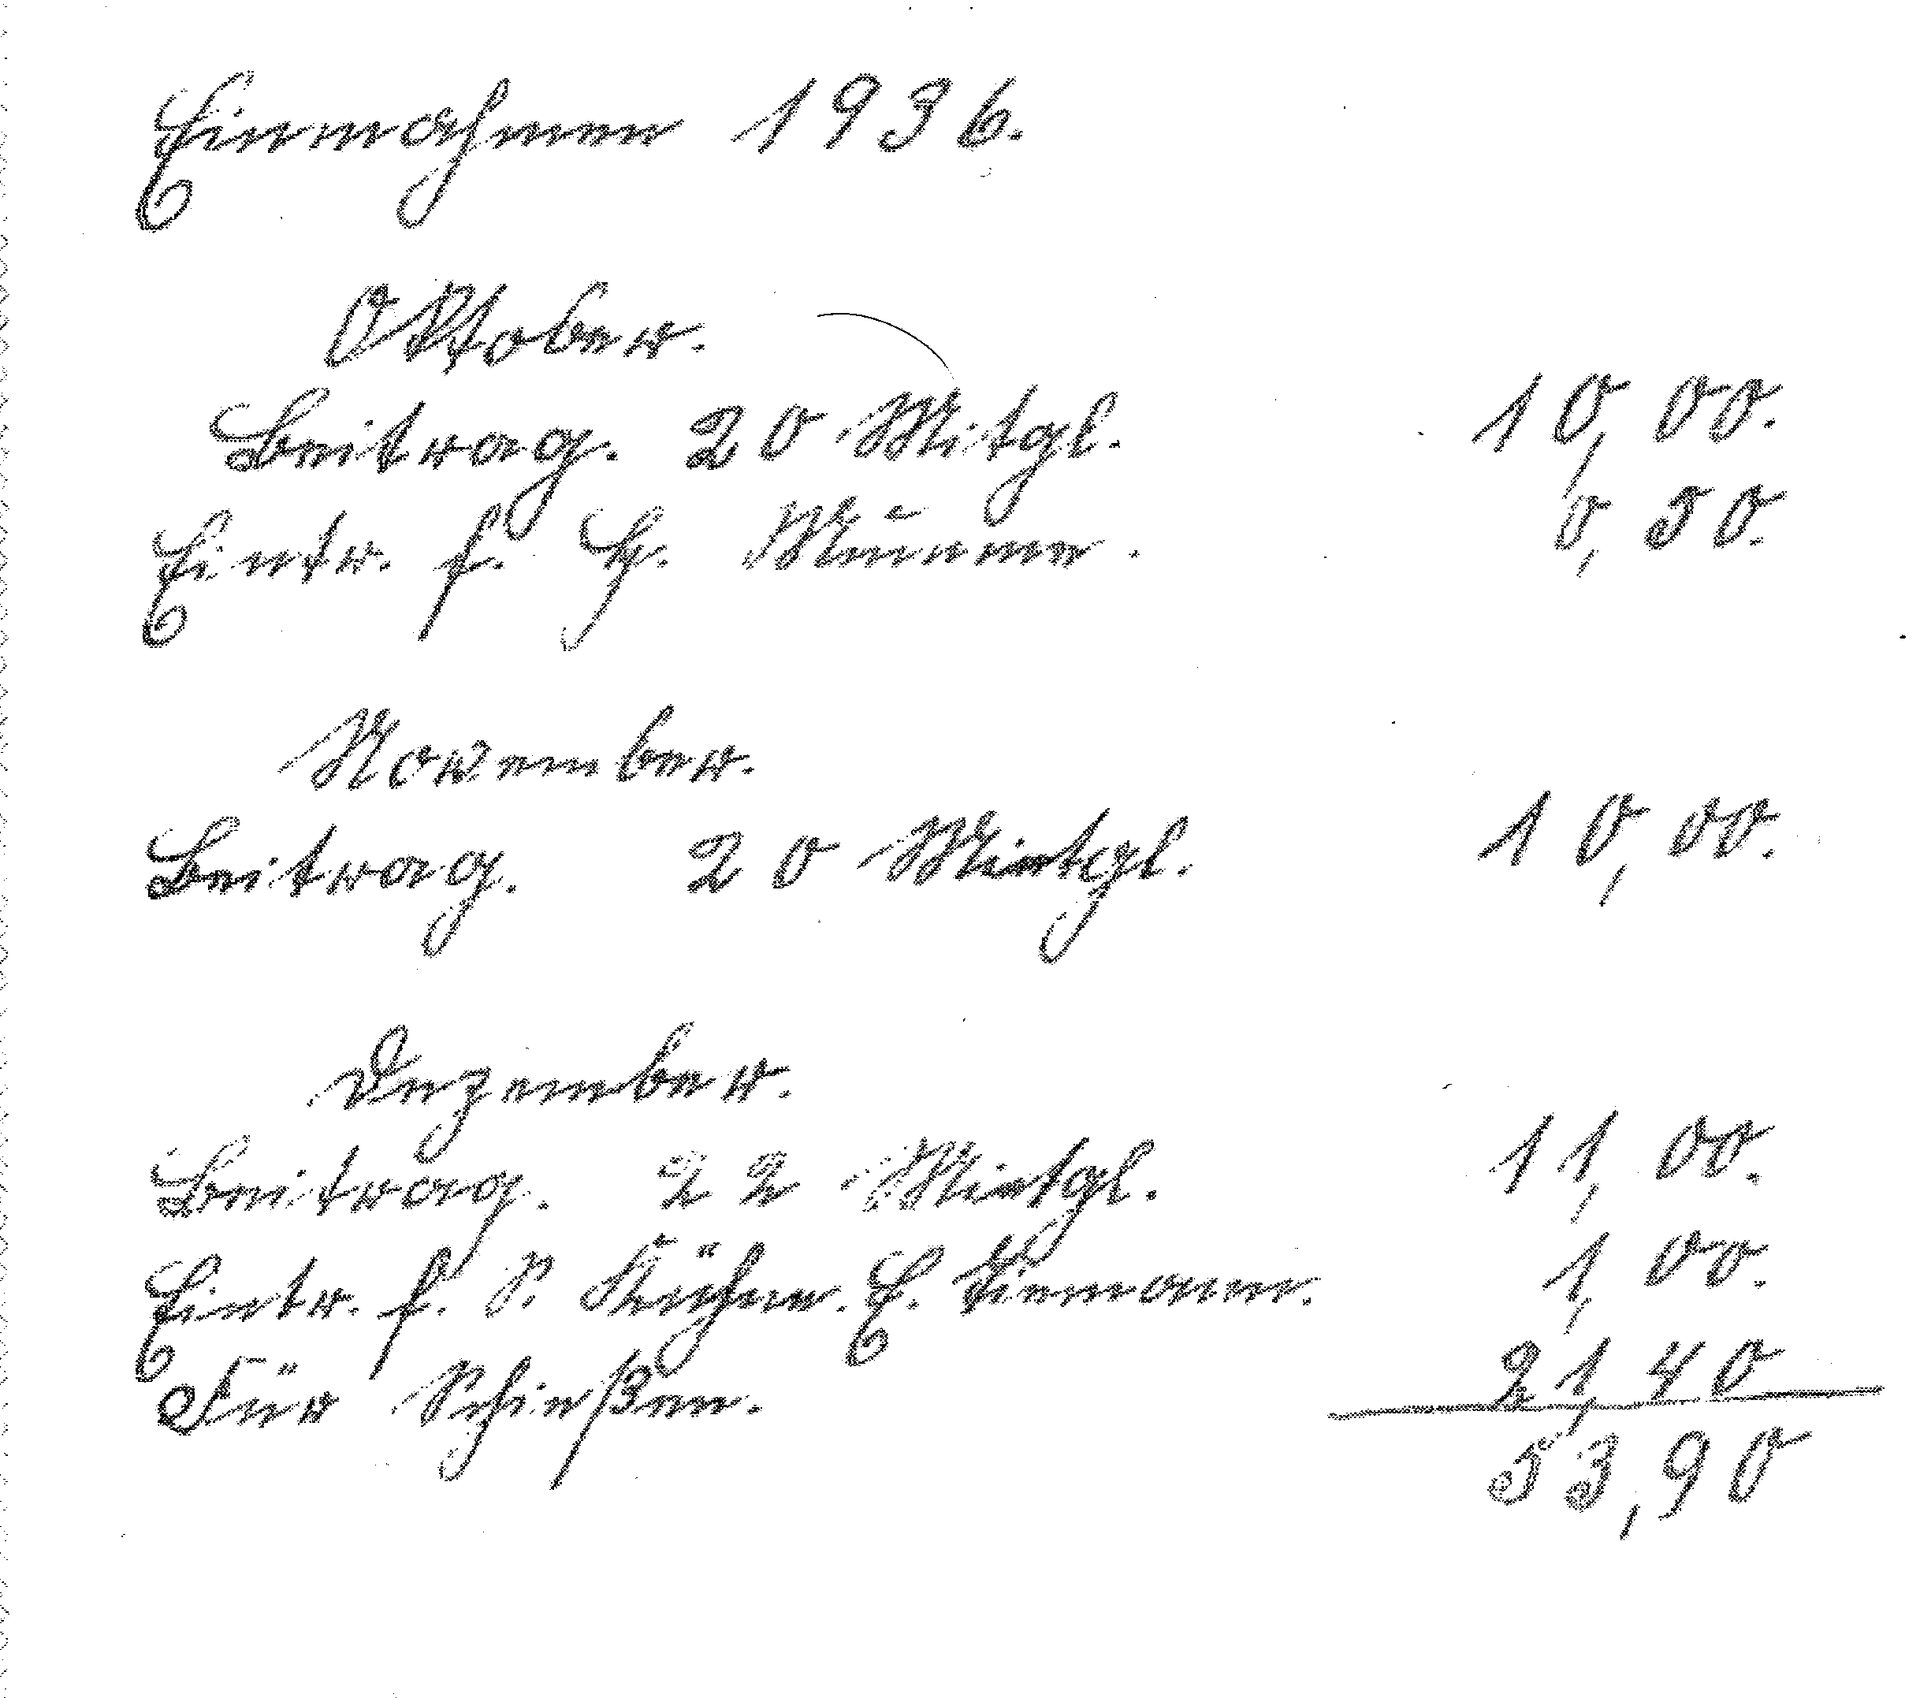 Einnahmen 1936.
Oktober.
Beitrag. 20 Mitgl. 10,00.
Eintr. f. H. 0,50.
November.
Beitrag. 20 Mietgl. 10,00.
Dezember.
Beitrag. 22 Mietgl. 11,00.
Eintr. f. P. Kühne. E. Tiemann. 1,00.
Für Schießen. 21,40
53,90